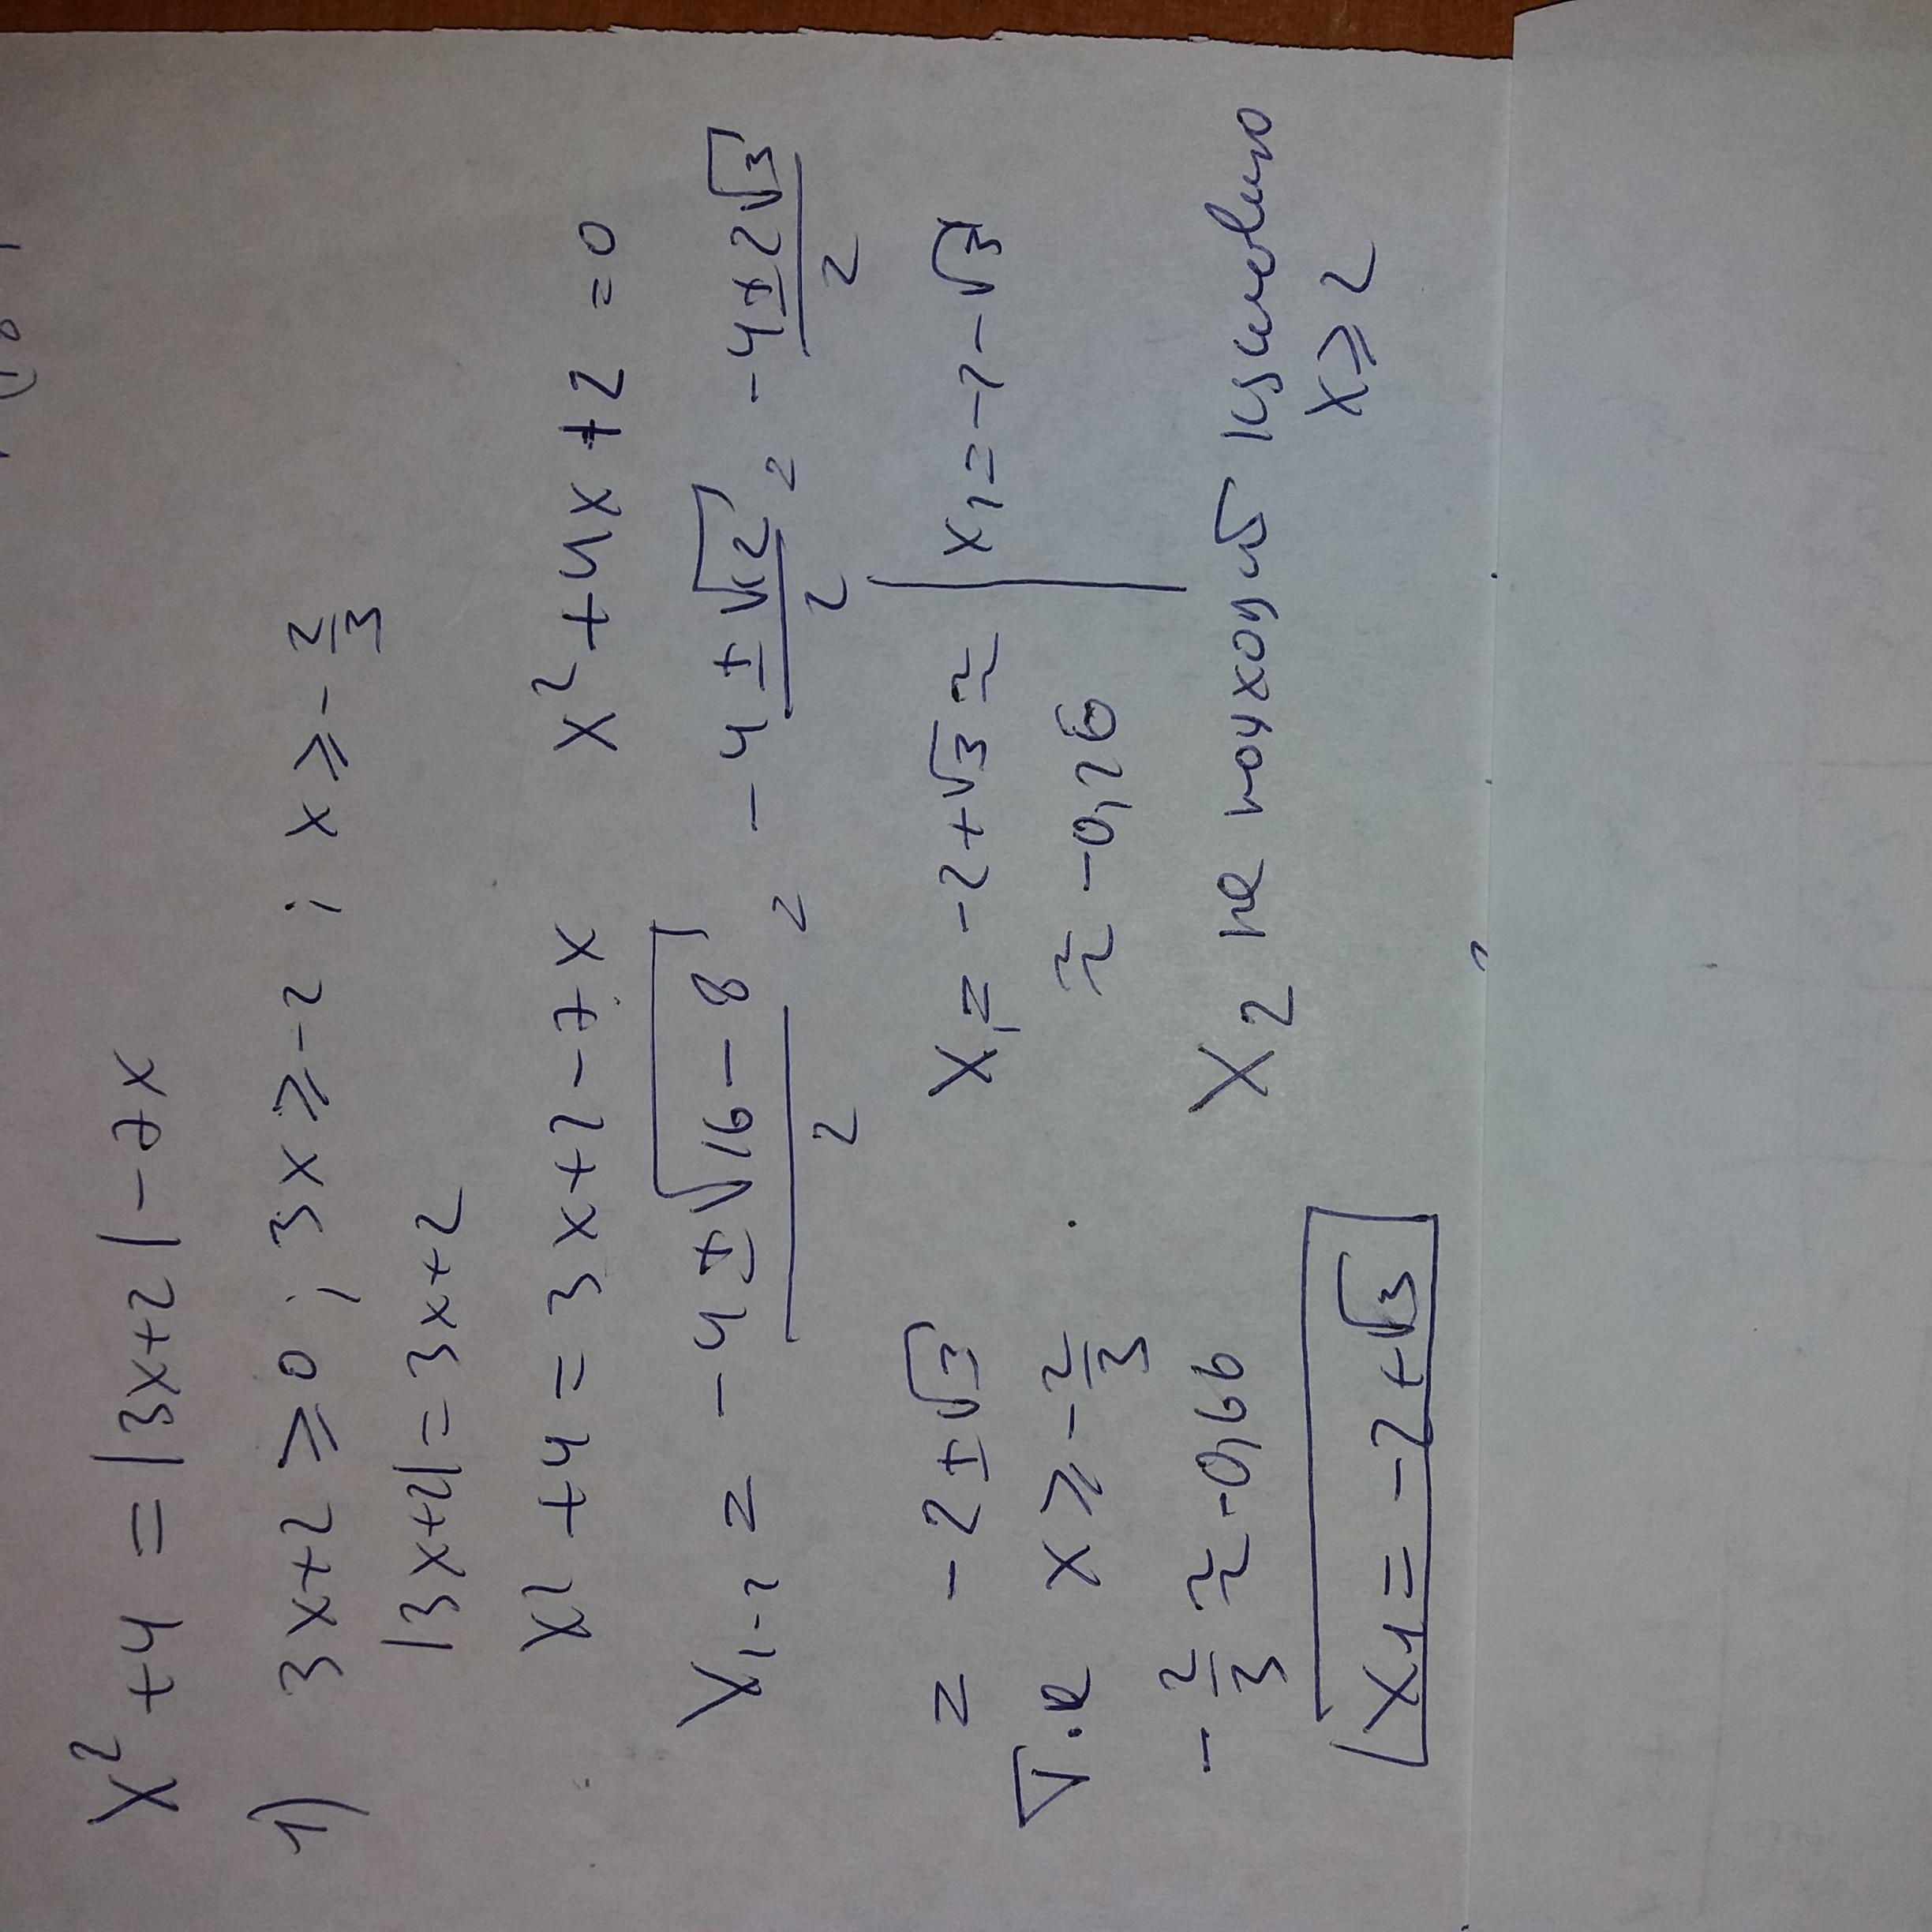 x² + 4 = |3x+2| - 7x
1) 3x+2 ≥ 0 ; 3x ≥ -2 ; x ≥ -2/3
|3x+2| = 3x+2
x² + 4 = 3x+2-7x x² + 4x + 2 = 0
x₁₋₂ = (-4 ± √(16-8))/2 = (-4 ± √12)/2 = (-4 ± 2√3)/2
= -2 ± √3 x₁ = -2+√3 ≈ x₂ = -2-√3
т.к x ≥ -2/3 ≈ -0,26
-2/3 ≈ -0,66 x₂ не подходит
x₁ = -2+√3 x ≥ 2